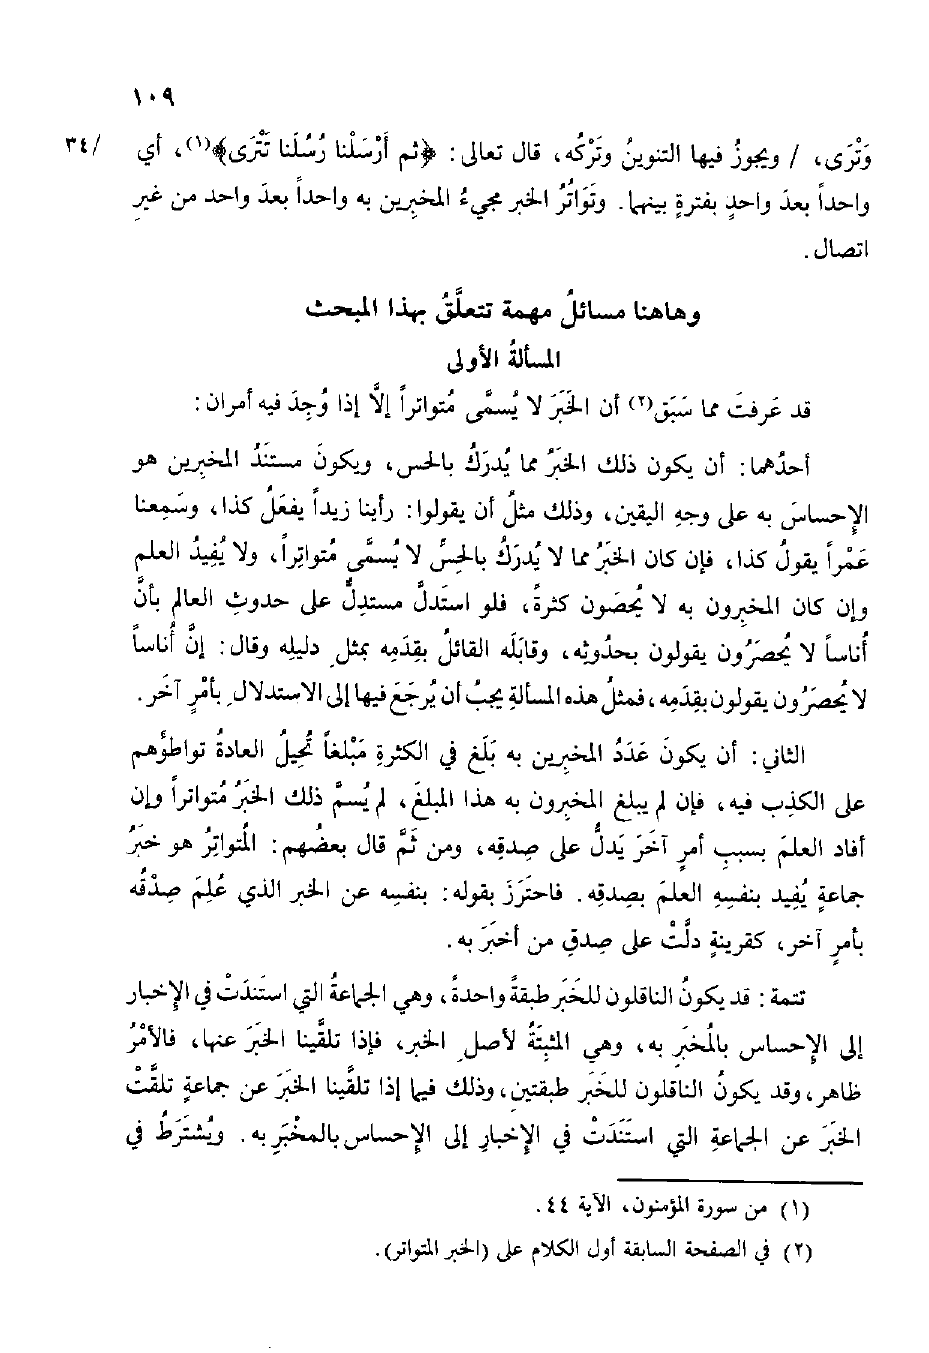 ١٠٩
وَتْرَى، / ويجوزُ فيها التنوينُ وتَرْكُه، قال تعالى: ﴿ثم أَرْسَلْنا رُسُلَنا تَتْرَى﴾(١)، أي /٣٤
واحداً بعدَ واحدٍ بفترةٍ بينهما. وتَوَاتُرُ الخبر مجيءُ المخبِرين به واحداً بعدَ واحد من غيرِ
اتصال.
وهاهنا مسائلُ مهمة تتعلَّقُ بهذا المبحث
المسألةُ الأولى
قد عَرفتَ مما سَبَق(٢) أن الخَبَرَ لا يُسمَّى مُتواتراً إلَّا إذا وُجِدَ فيه أمران:
أحدُهما: أن يكون ذلك الخبَرُ مما يُدرَكُ بالحس، ويكونَ مستنَدُ المخبِرين هو
الإِحساسَ به على وجهِ اليقين، وذلك مثلُ أن يقولوا: رأينا زيداً يفعَلُ كذا، وسَمِعنا
عَمْراً يقولُ كذا، فإن كان الخبَرُ مما لا يُدرَكُ بالحِسِّ لا يُسمَّى مُتواتِراً، ولا يُفِيدُ العلم
وإن كان المخبِرون به لا يُحصَون كثرةً، فلو استَدلَّ مستدِلٌّ على حدوثِ العالم بأنَّ
أُناساً لا يُحصَرُون يقولون بحدوثِه، وقابَلَه القائلُ بقِدَمِه بمثلِ دليلِه وقال: إنَّ أُناساً
لا يُحصَرُون يقولون بقِدَمِه، فمثلُ هذه المسألةِ يجبُ أن يُرجَعَ فيها إلى الاستدلالِ بأمْرٍ آخَر.
الثاني: أن يكونَ عَدَدُ المخبِرين به بَلَغ في الكثرةِ مَبْلغاً تُحِيلُ العادةُ تواطؤَهم
على الكذِب فيه، فإن لم يبلغ المخبِرون به هذا المبلغَ، لم يُسمَّ ذلك الخبَرُ مُتواتراً وإن
أفاد العلمَ بسببِ أمرٍ آخَرَ يَدلُّ على صِدقِه، ومن ثَمَّ قال بعضُهم: المُتواتِرُ هو خبَرُ
جماعةٍ يُفِيد بنفسِهِ العلمَ بصدقِه. فاحتَرَزَ بقوله: بنفسِه عن الخبر الذي عُلِمَ صِدْقُه
بأمرٍ آخر، كقرينةٍ دلَّتْ على صِدقِ من أخبَرَ به.
تتمة: قد يكونُ الناقلون للخَبَر طبقةً واحدةً، وهي الجماعةُ التي استَندَتْ في الإِخبار
إلى الإِحساس بالمُخبَر به، وهي المثبِتَةُ لأصلِ الخبر، فإذا تلقَّينا الخبَرَ عنها، فالأمْرُ
ظاهر، وقد يكونُ الناقلون للخَبَر طبقتين، وذلك فيما إذا تلقَّينا الخبَرَ عن جماعةٍ تلقَّتْ
الخبَرَ عن الجماعةِ التي استَنَدَتْ في الإِخبارِ إلى الإِحساس بالمخْبَرِ به. ويُشتَرَطُ في
(١) من سورة المؤمنون، الآية ٤٤.
(٢) في الصفحة السابقة أول الكلام على (الخبر المتواتر).